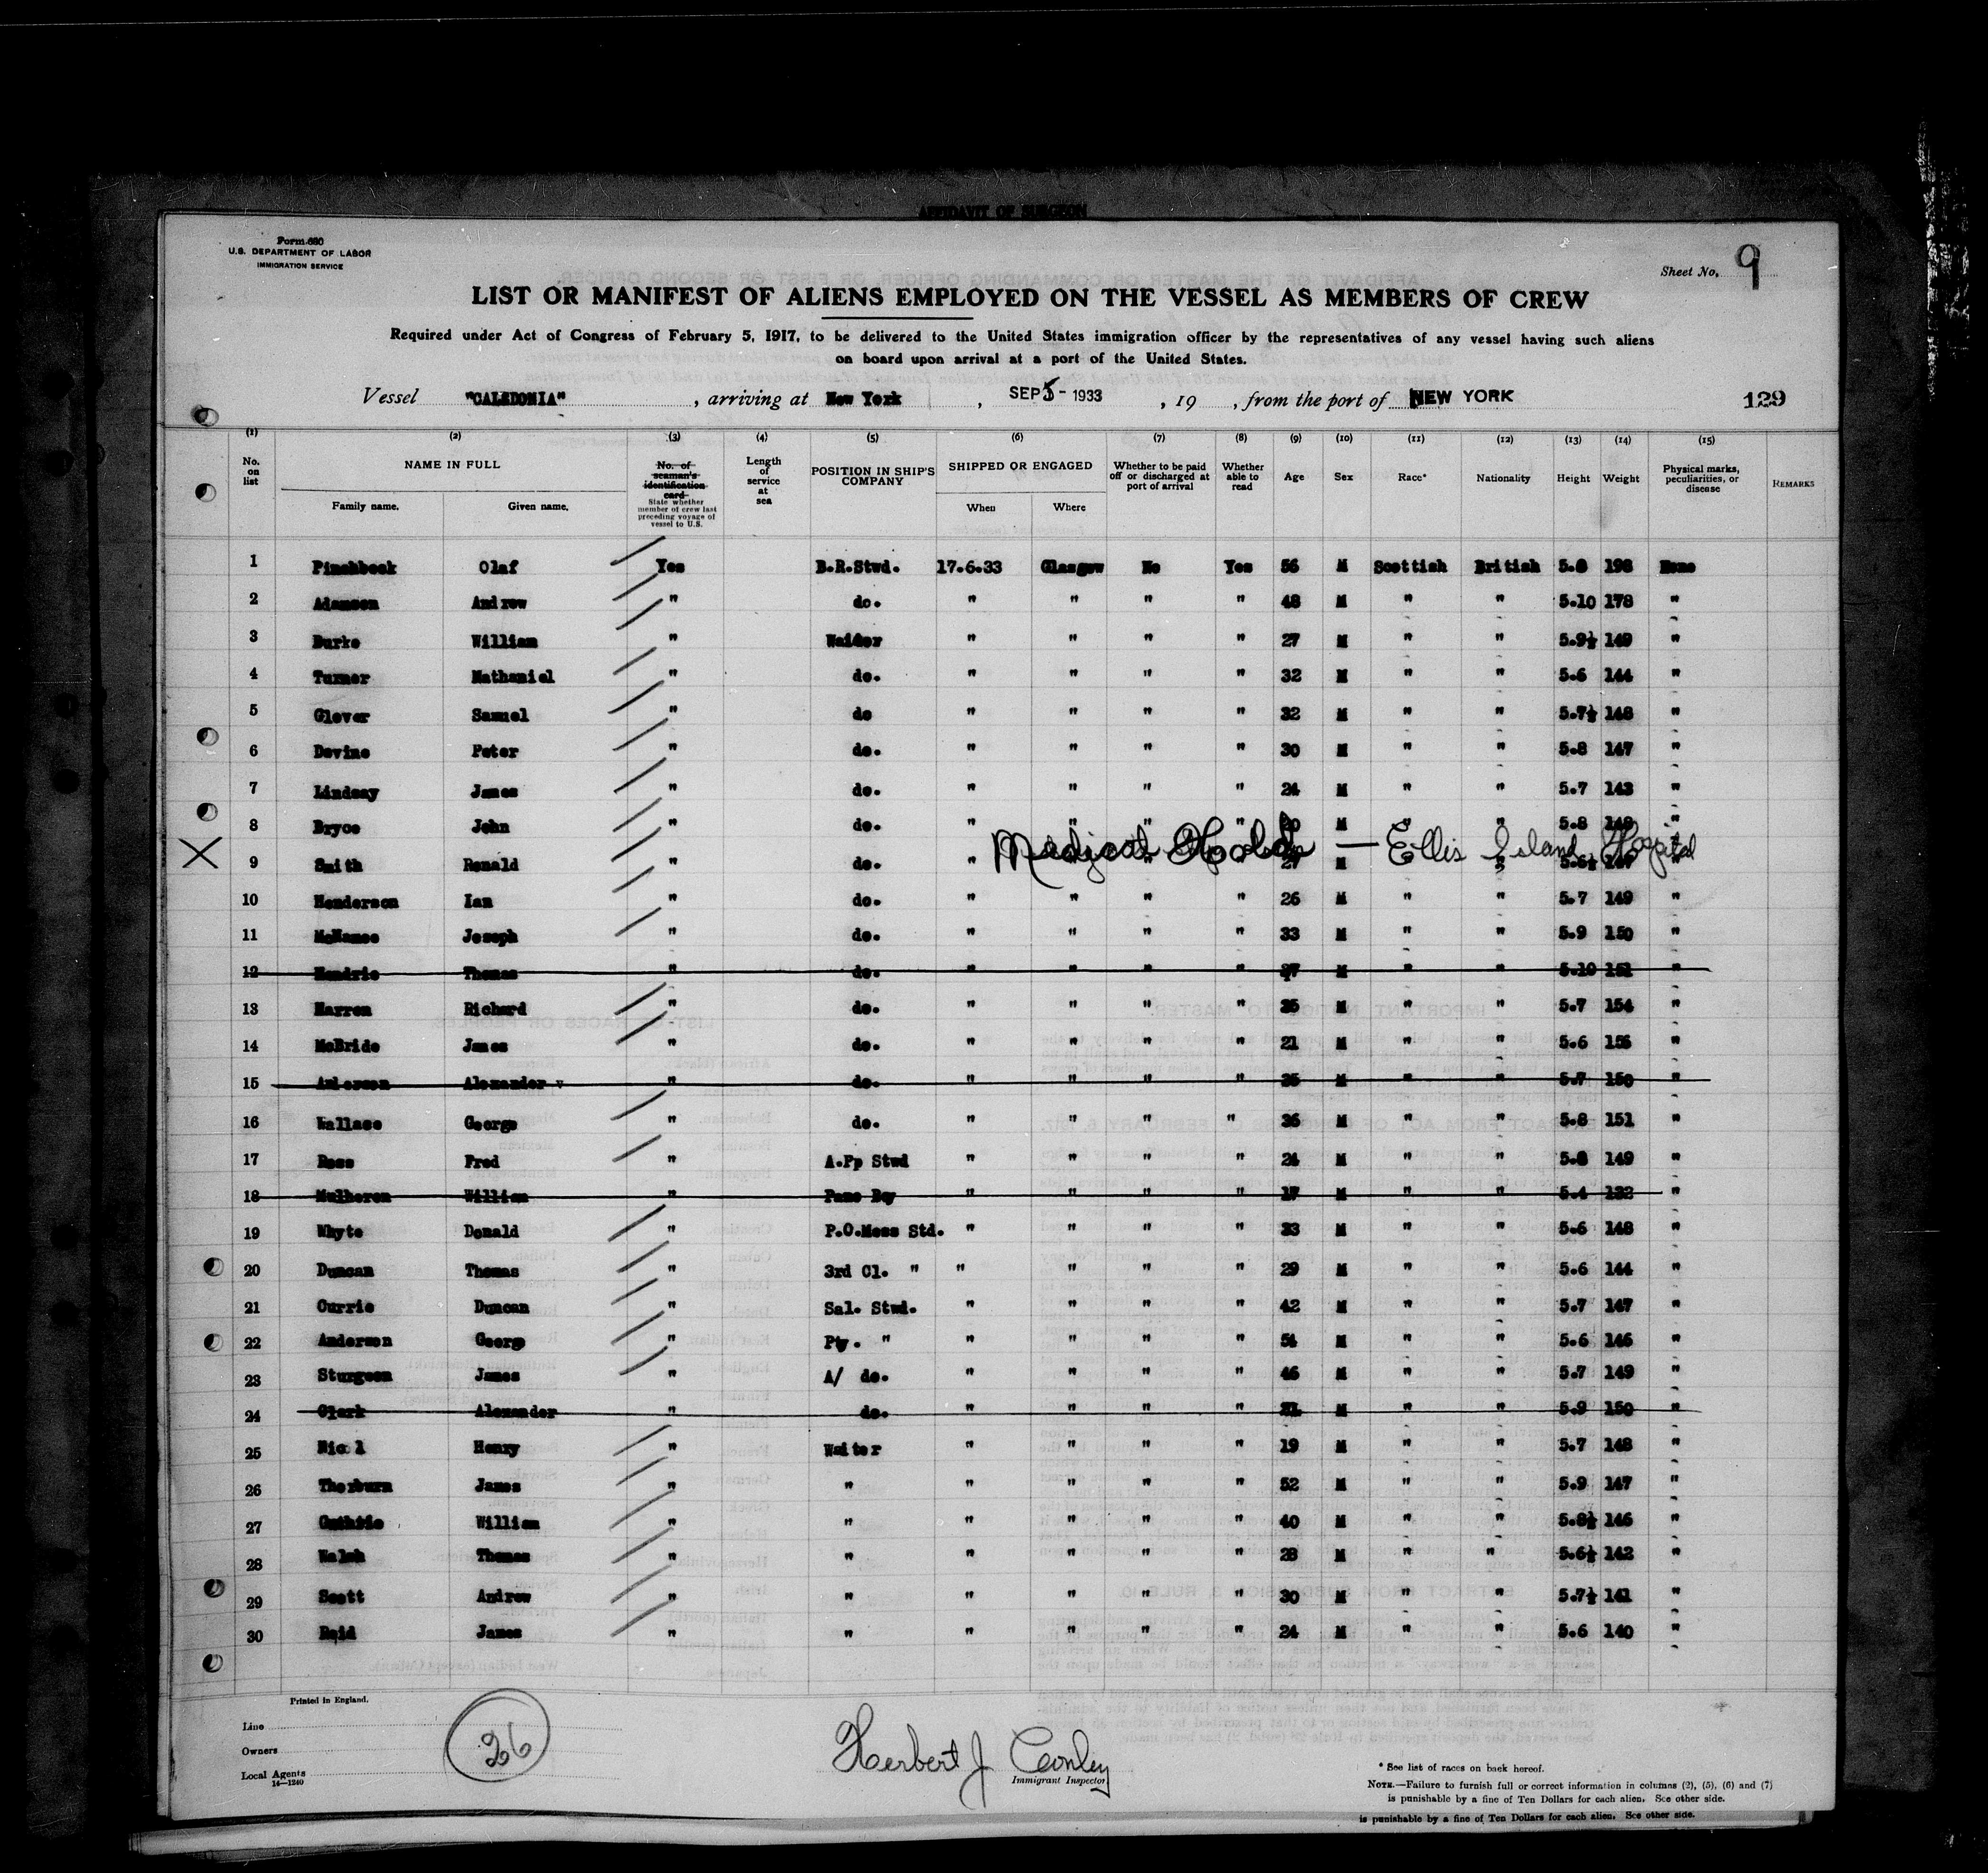 AFFIDAVIT OF SURGEON
Form 680
U.S. DEPARTMENT OF LABOR
IMMIGRATION SERVICE
Sheet No. 9
LIST OR MANIFEST OF ALIENS EMPLOYED ON THE VESSEL AS MEMBERS OF CREW
Required under Act of Congress of February 5, 1917, to be delivered to the United States immigration officer by the representatives of any vessel having such aliens
on board upon arrival at a port of the United States.
Vessel "CALEDONIA", arriving at New York, SEP 5 - 1933, 19 , from the port of NEW YORK 129
(1) (2) (3) (4) (5) (6) (7) (8) (9) (10) (11) (12) (13) (14) (15)
No. on list NAME IN FULL Family name. Given name. No. of seaman's identification card State whether member of crew last preceding voyage of vessel to U.S. Length of service at sea POSITION IN SHIP'S COMPANY SHIPPED OR ENGAGED When Where Whether to be paid off or discharged at port of arrival Whether able to read Age Sex Race* Nationality Height Weight Physical marks, peculiarities, or disease REMARKS
1 Pinchbeck Olaf Yes B.R.Stwd. 17.6.33 Glasgow No Yes 56 M Scottish British 5.8 198 None
2 Adamson Andrew " do. " " " " 48 M " " 5.10 178 "
3 Burke William " Waiter " " " " 27 M " " 5.9½ 149 "
4 Turner Nathaniel " do. " " " " 32 M " " 5.6 144 "
5 Glover Samuel " do " " " " 32 M " " 5.7½ 148 "
6 Devine Peter " do. " " " " 30 M " " 5.8 147 "
7 Lindsay James " do. " " " " 24 M " " 5.7 143 "
8 Bryce John " do. " " " " M " " 5.8 "
Medical Hold — Ellis Island Hospital
X 9 Smith Ronald " do. " " " " 27 M " " 5.6½ "
10 Henderson Ian " do. " " " " 26 M " " 5.7 149 "
11 McNamee Joseph " do. " " " " 33 M " " 5.9 150 "
12 Hendrie Thomas " do. " " " " 27 M " " 5.10 151 "
13 Harron Richard " do. " " " " 35 M " " 5.7 154 "
14 McBride James " do. " " " " 21 M " " 5.6 155 "
15 Anderson Alexander " do. " " " " 35 M " " 5.7 150 "
16 Wallace George " do. " " " " 36 M " " 5.8 151 "
17 Ross Fred " A.Pp Stwd " " " " 24 M " " 5.8 149 "
18 Mulheron William " Pans Boy " " " " 17 M " " 5.4 132 "
19 Whyte Donald " P.O.Mess Std. " " " " 33 M " " 5.6 148 "
20 Duncan Thomas " 3rd Cl. " " " " " 29 M " " 5.6 144 "
21 Currie Duncan " Sal. Stwd. " " " " 42 M " " 5.7 147 "
22 Anderson George " Pty. " " " " " 54 M " " 5.6 146 "
23 Sturgeon James " A/ do. " " " " 46 M " " 5.7 149 "
24 Clark Alexander " do. " " " " 21 M " " 5.9 150 "
25 Nicol Henry " Waiter " " " " 19 M " " 5.7 148 "
26 Thorburn James " " " " " " 52 M " " 5.9 147 "
27 Guthrie William " " " " " " 40 M " " 5.8½ 146 "
28 Walsh Thomas " " " " " " 28 M " " 5.6½ 142 "
29 Scott Andrew " " " " " " 30 M " " 5.7½ 141 "
30 Reid James " " " " " " 24 M " " 5.6 140 "
Printed in England.
Line
Owners
Local Agents
14—1240
26
Herbert J Conley
Immigrant Inspector
* See list of races on back hereof.
NOTE.—Failure to furnish full or correct information in columns (2), (5), (6) and (7)
is punishable by a fine of Ten Dollars for each alien. See other side.
is punishable by a fine of Ten Dollars for each alien. See other side.